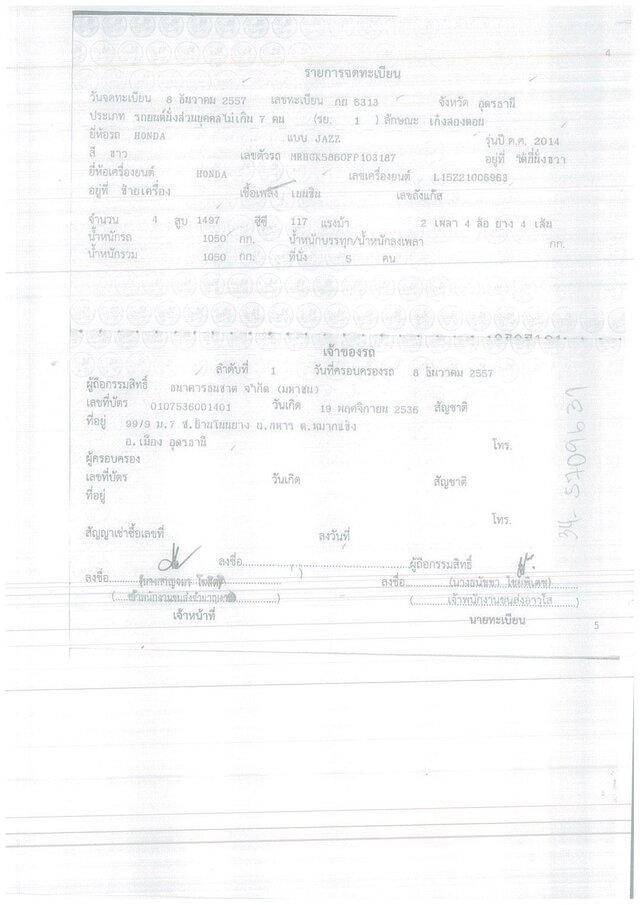 4
รายการจดทะเบียน
วันจดทะเบียน 8 ธันวาคม 2557 เลขทะเบียน กย 6313 จังหวัด อุดรธานี
ประเภท รถยนต์นั่งส่วนบุคคลไม่เกิน 7 คน (รย. 1 ) ลักษณะ เก๋งสองตอน
ยี่ห้อรถ HONDA แบบ JAZZ รุ่นปี ค.ศ. 2014
สี ขาว เลขตัวรถ MRHGK5860FP103187 อยู่ที่ ใต้ที่นั่งขวา
ยี่ห้อเครื่องยนต์ HONDA เลขเครื่องยนต์ L15Z21006963
อยู่ที่ ซ้ายเครื่อง เชื้อเพลิง เบนซิน เลขถังแก๊ส
จำนวน 4 สูบ 1497 ซีซี 117 แรงม้า 2 เพลา 4 ล้อ ยาง 4 เส้น
น้ำหนักรถ 1050 กก. น้ำหนักบรรทุก/น้ำหนักลงเพลา กก.
น้ำหนักรวม 1050 กก. ที่นั่ง 5 คน
เจ้าของรถ
ลำดับที่ 1 วันที่ครอบครองรถ 8 ธันวาคม 2557
ผู้ถือกรรมสิทธิ์ ธนาคารธนชาต จำกัด (มหาชน)
เลขที่บัตร 0107536001401 วันเกิด 19 พฤศจิกายน 2536 สัญชาติ
ที่อยู่ 99/9 ม.7 ซ.บ้านโนนยาง ถ.ทหาร ต.หมากแข้ง
อ.เมือง อุดรธานี โทร.
ผู้ครอบครอง
เลขที่บัตร วันเกิด สัญชาติ
ที่อยู่
โทร.
สัญญาเช่าซื้อเลขที่ ลงวันที่
ลงชื่อ ผู้ถือกรรมสิทธิ์
ลงชื่อ ลงชื่อ (นางธนัชชา ไชยพิเดช)
เจ้าพนักงานขนส่งชำนาญงาน (เจ้าพนักงานขนส่งอาวุโส)
เจ้าหน้าที่ นายทะเบียน
5
34-5709631